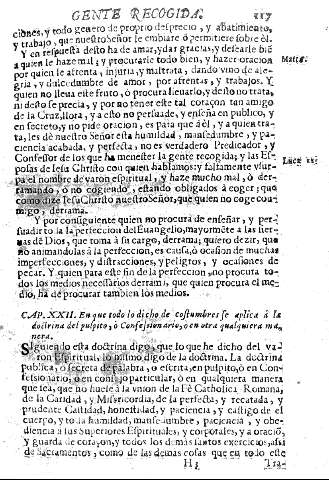 GENTE RECOGIDA. 117
ciones, y todo genero de proprio desprecio, y abatimiento,
y trabajo, que nuestro Señor le embiare ò permitiere sobre èl.
Y en respuesta desto ha de amar, y dar gracias, y desearle biē
a quien le haze mal; y procurarle todo bien, y hazer oracion
por quien le afrenta, injuria, y maltrata, dando vino de ale-
gria, y dulcedumbre de amor, por afrentas, y trabajos. Y
quien no lleva este fruto, ò procura llevarlo, y desto no trata,
ni desto se precia, y por no tener este tal coraçon tan amigo
de la Cruz, llora, y a esto no persuade, y enseña en publico, y
en secreto, y no pide oracion, es para que à èl, y a quien tra-
ta, les dè nuestro Señor esta humildad, mansedumbre, y pa-
ciencia acabada, y perfecta, no es verdadero Predicador, y
Confessor de los que ha menester la gente recogida; y las Es-
posas de Jesu Christo con quien hablamos: y falsamente vsur-
pa el nombre de varon espiritual, y haze mucho mal, ò der-
ramando, ò no cogiendo, estando obligados à coger; que
como dize Jesu Christo nuestro Señor, que quien no coge con-
migo, derrama.
Y por consiguiente quien no procura de enseñar, y per-
suadir to la la perfeccion del Euangelio, mayormēte a las sier-
uas dē Dios, que toma à su cargo, derrama; quiero dezir, que
no animandolas à la perfeccion, es causa, ò ocasion de muchas
imperfecciones, y distracciones, y peligros, y ocasiones de
pecar. Y quien para este fin de la perfeccion, no procura to-
dos los medios necessarios derrama, que quien procura el me-
dio, ha de procurar tambien los medios.
CAP. XXII. En que todo lo dicho de costumbres se aplica à la
doctrina del pulpito, ò Confessionario, ò en otra qualquiera ma-
nera.
SIguiendo esta doctrina digo, que lo que he dicho del va-
ron Espiritual, lo mismo digo de la doctrina. La doctrina
publica, ò secreta de palabra, o escrita, en pulpito, ò en Con-
fessionario, ò en conversacion particular, ò en qualquiera manera
que sea, que no fuere à la vnion de la Fè Catholica Romana,
de la Caridad, y Misericordia, de la perfecta, y recatada, y
prudente Castidad, honestidad, y paciencia, y castigo de el
cuerpo, y to la humildad, mansedumbre, y paciencia, y obe-
diencia à los Superiores Espirituales, y corporales, y a oracio,
y guarda de coraçon, y todos los demàs santos exercicios, assi
de Sacramentos, como de las demas cosas que en todo este
H 3 Tra-